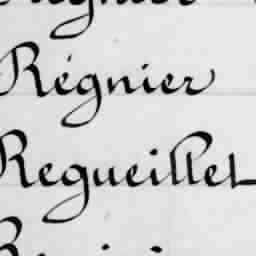 Régnier
Regueillet